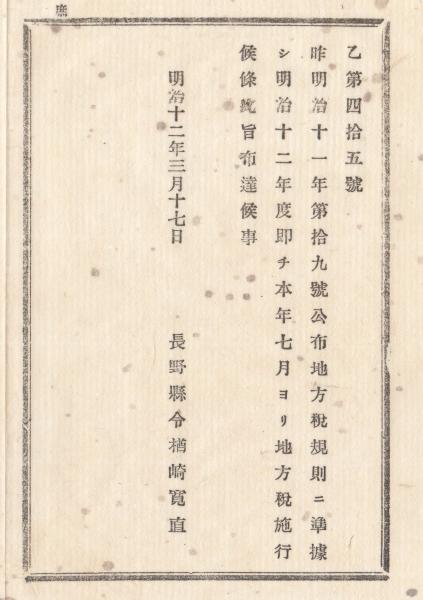 乙第四拾五號
昨明治十一年第拾九號公布地方稅規則ニ準據
シ明治十二年度即チ本年七月ヨリ地方稅施行
候條此旨布達候事
明治十二年三月十七日
長野縣令楢崎寬直